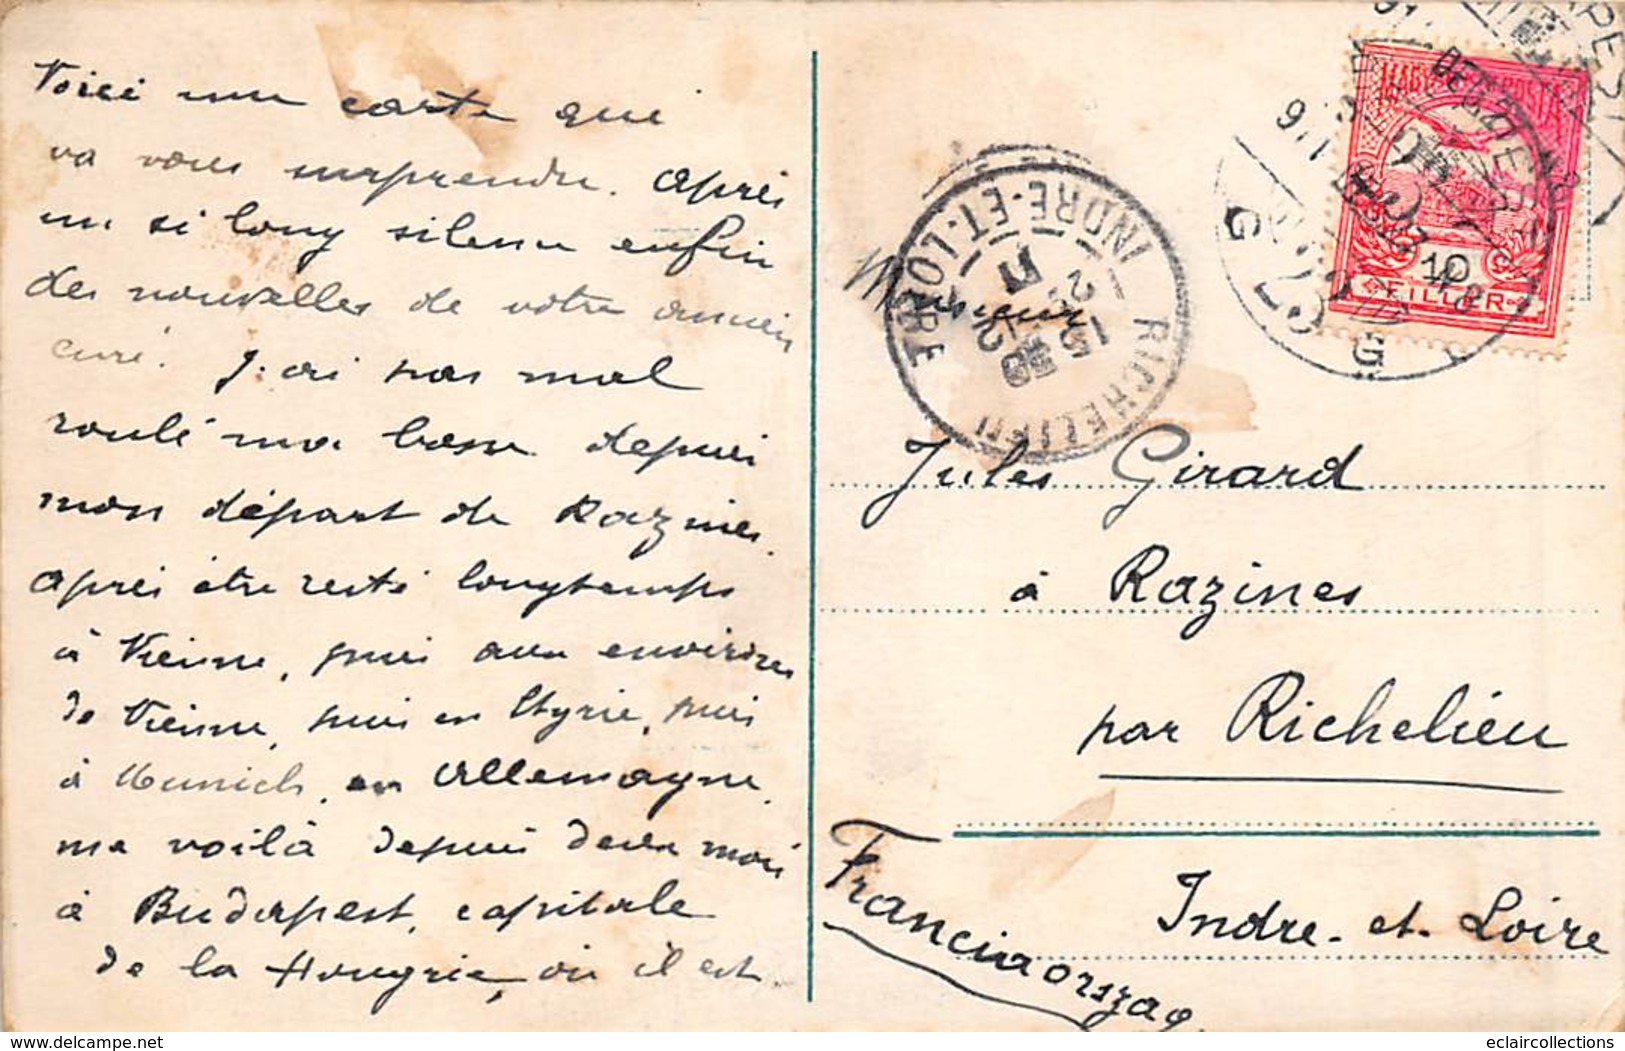 Voici une carte qui
va vous surprendre. Après
un si long silence enfin
des nouvelles de votre ancien
curé. J'ai pas mal
roulé ma bosse depuis
mon départ de Razines.
Après être resté longtemps
à Vienne, puis aux environs
de Vienne, puis en Styrie, puis
à Munich, en Allemagne,
me voilà depuis deux mois
à Budapest, capitale
de la Hongrie, où il est
RICHELIEU
INDRE-ET-LOIRE
MAGYAR
10
FILLER
Monsieur
Jules Girard
à Razines
par Richelieu
Indre-et-Loire
Franciaország
delcampe.net
eclaircollections